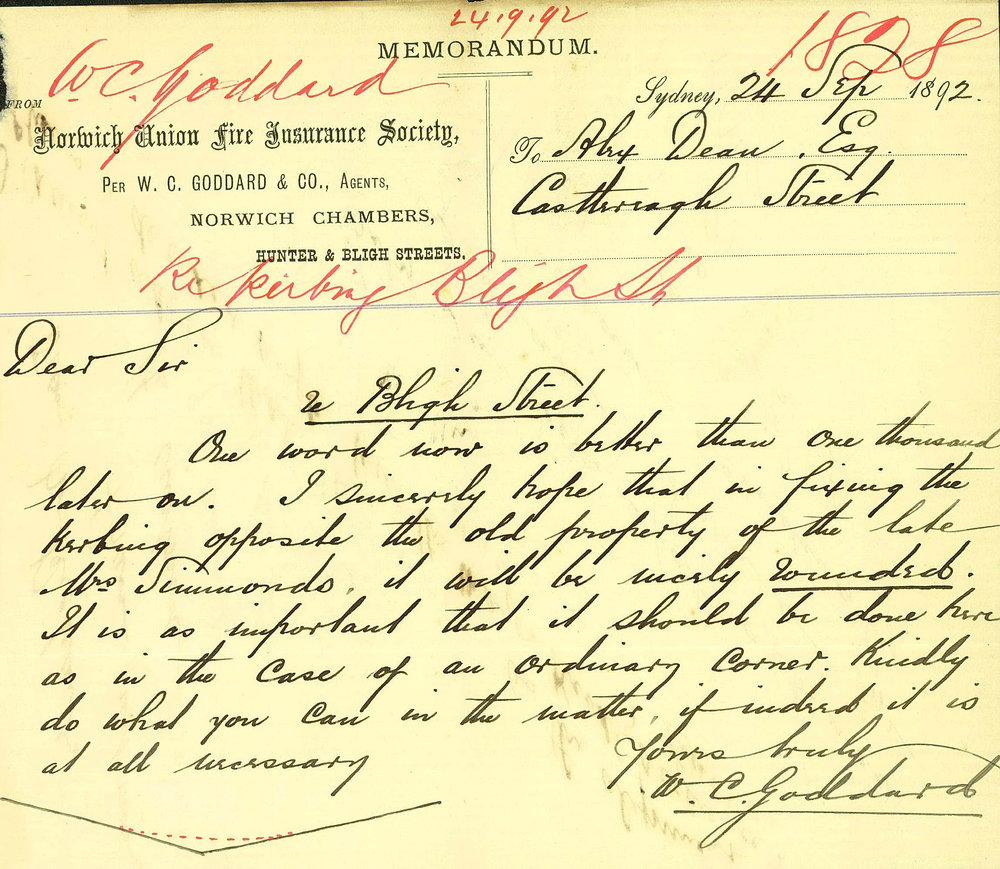 24.9.92
MEMORANDUM.
1898
W. C. Goddard
FROM
Norwich Union Fire Insurance Society,
PER W. C. GODDARD & CO., AGENTS,
NORWICH CHAMBERS,
HUNTER & BLIGH STREETS.
Sydney, 24 Sep 1892.
To Alex Dean, Esq.
Castlereagh Street
Re Kerbing Bligh St
Dear Sir
re Bligh Street.
One word now is better than one thousand
later on. I sincerely hope that in fixing the
kerbing opposite the old property of the late
Mrs Simmonds, it will be nicely rounded.
It is as important that it should be done here
as in the case of an ordinary corner. Kindly
do what you can in the matter, if indeed it is
at all necessary
Yours truly
W. C. Goddard